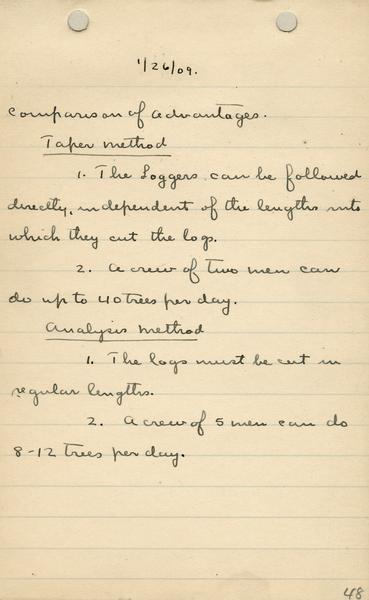 1/26/09.
Comparison of advantages.
Taper method
1. The Loggers can be followed
directly, independent of the lengths into
which they cut the logs.
2. A crew of two men can
do up to 40 trees per day.
Analysis method
1. The logs must be cut in
regular lengths.
2. A crew of 5 men can do
8-12 trees per day.
48